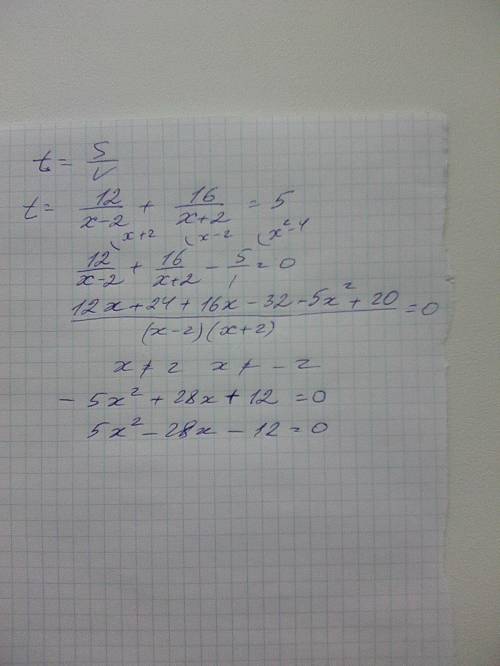 t = S/V
t = 12/(x-2) + 16/(x+2) = 5
(x+2 (x-2 (x²-4
12/(x-2) + 16/(x+2) - 5/1 = 0
(12x+24+16x-32-5x²+20)/((x-2)(x+2)) = 0
x ≠ 2 x ≠ -2
-5x²+28x+12=0
5x²-28x-12=0